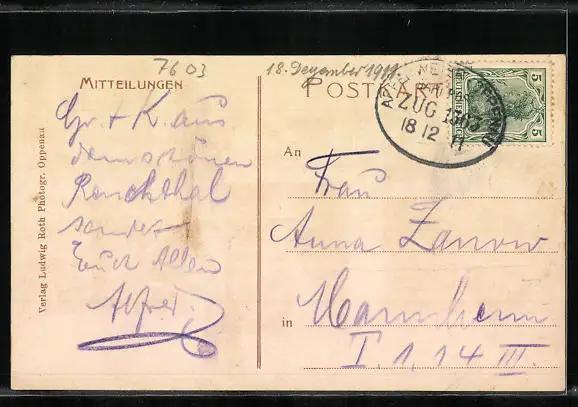 7603
18. Dezember 1911
MITTEILUNGEN
POSTKARTE
Gr. + K. aus
dem schönen
Renchthal
sendet
Euch Allen
Alfred.
Verlag Ludwig Roth Photogr. Oppenau
OPPENAU
ZUG 1363
18 12 11
5 5
DEUTSCHES REICH
An
Frau
Anna Zanow
in Mannheim
I. 1. 14 III.